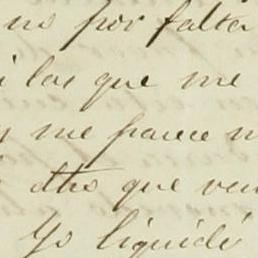 no por falta
i las que me
y me parece
dho que ven
Yo liquidé